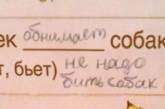 ек обнимает собак
т, бьет) не надо
бить собак